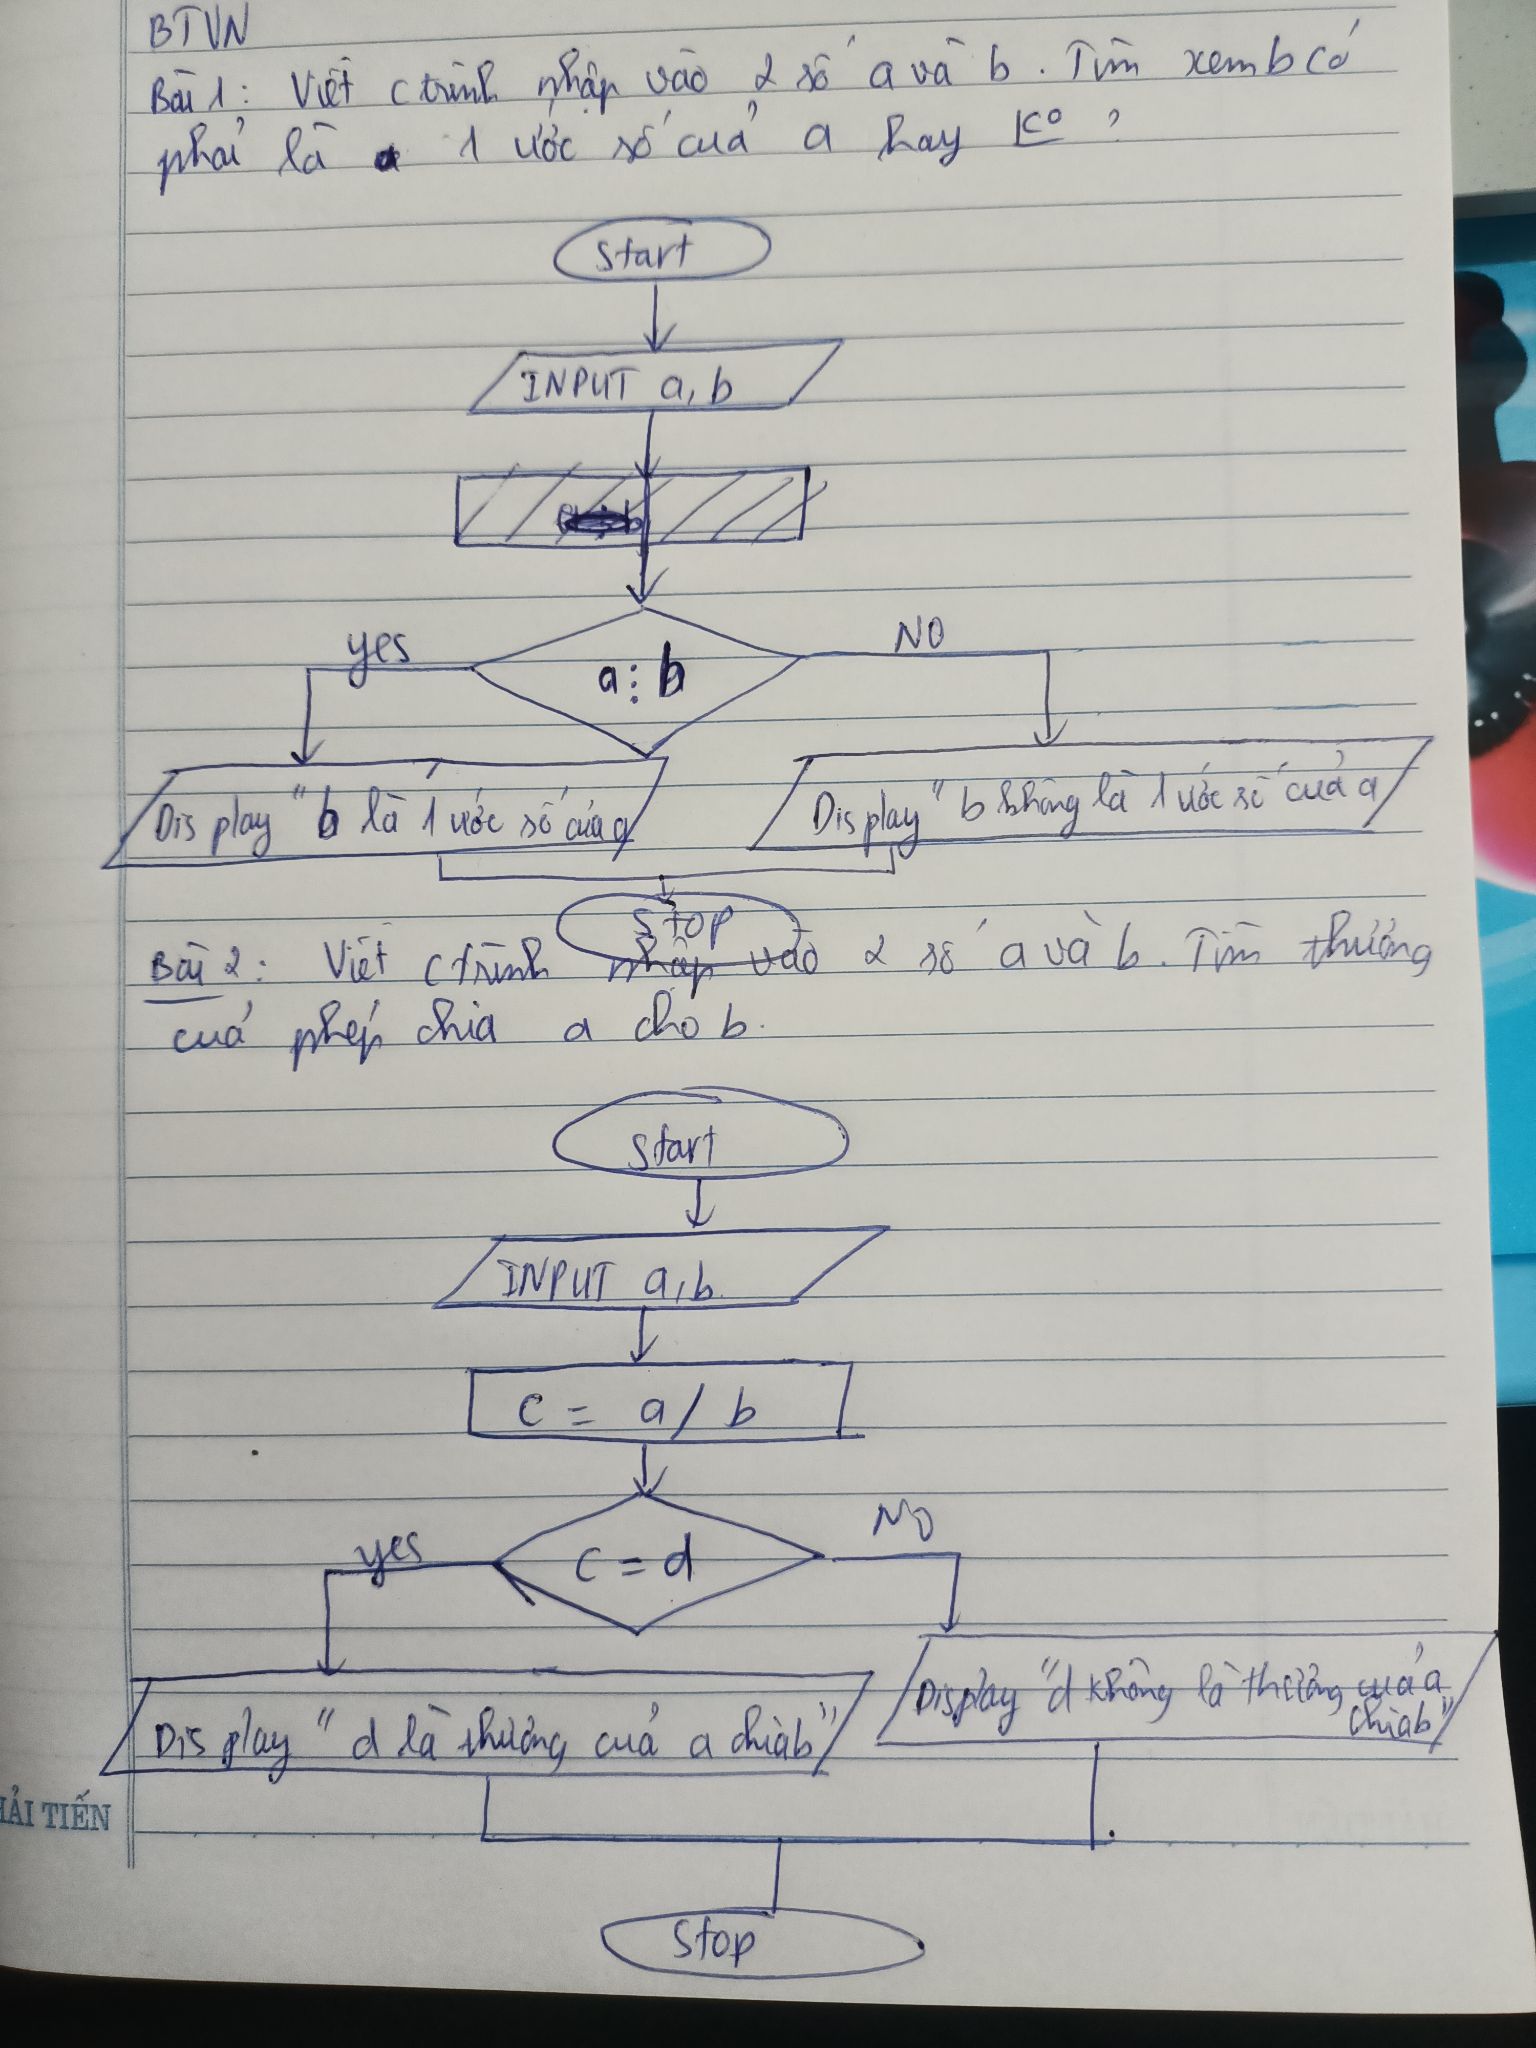 BTVN
Bài 1: Viết ctrình nhập vào 2 số a và b. Tìm xem b có
phải là 1 ước số của a hay K°?
Start
INPUT a, b
yes
NO
a ⋮ b
Display "b là 1 ước số của a
Display "b không là 1 ước số của a
Stop
Bài 2: Viết ctrình nhập vào 2 số a và b. Tìm thương
của phép chia a cho b.
Start
INPUT a, b
c = a / b
yes
NO
c = d
Display "d là thương của a chia b"
Display "d không là thương của a
chia b"
HẢI TIẾN
Stop